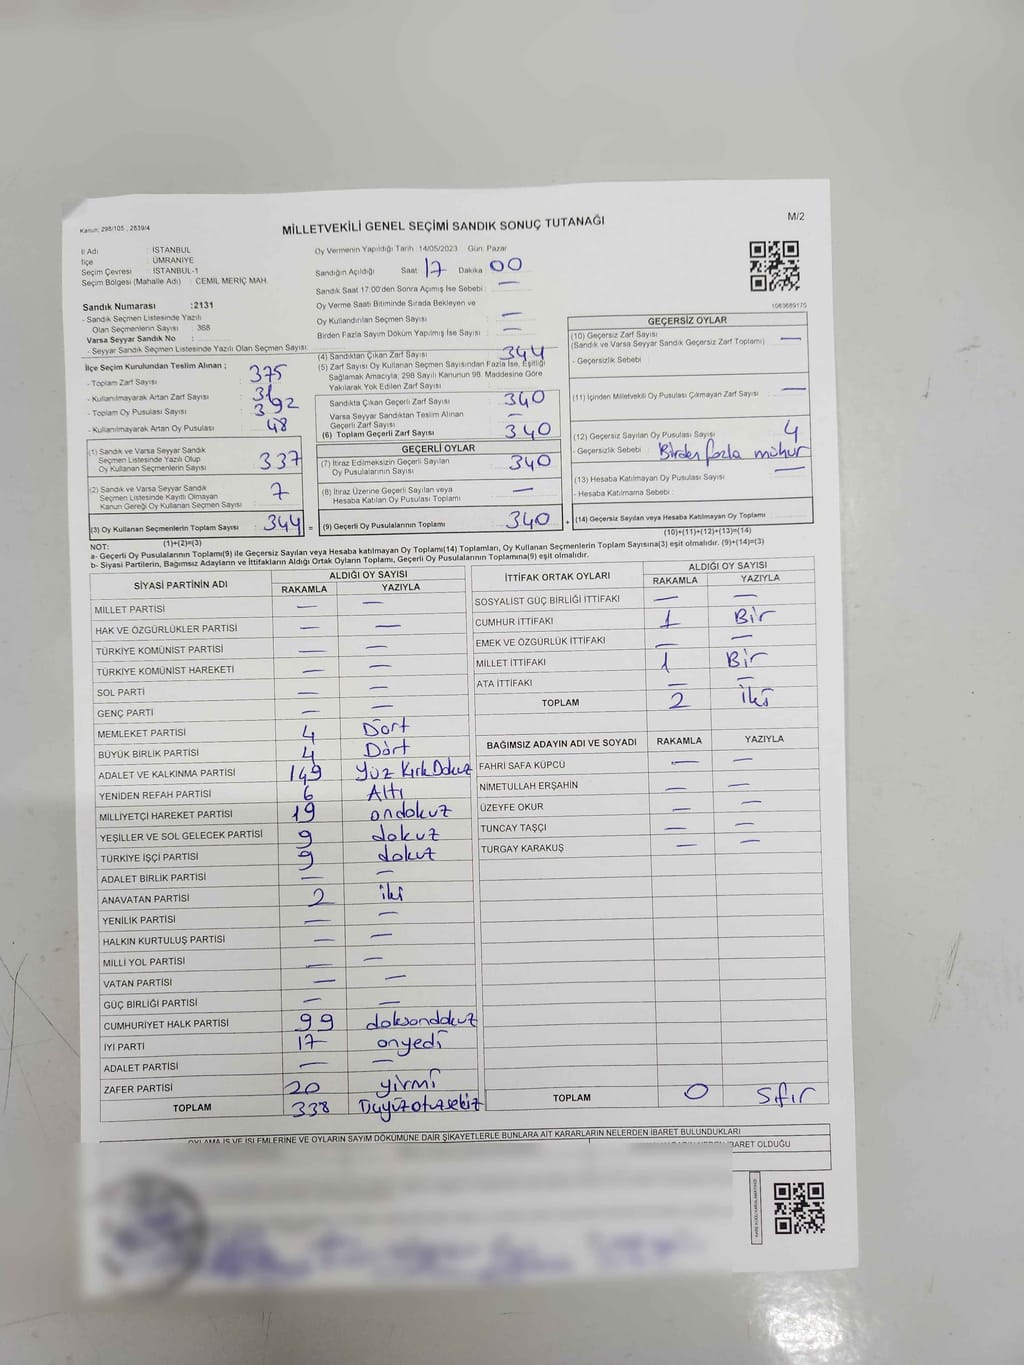 Kanun: 298/105 , 2839/4
MİLLETVEKİLİ GENEL SEÇİMİ SANDIK SONUÇ TUTANAĞI
M/2
İl Adı : İSTANBUL
İlçe : ÜMRANİYE
Seçim Çevresi : İSTANBUL-1
Seçim Bölgesi (Mahalle Adı) : CEMİL MERİÇ MAH.
Sandık Numarası :2131
- Sandık Seçmen Listesinde Yazılı
Olan Seçmenlerin Sayısı : 368
Varsa Seyyar Sandık No :
- Seyyar Sandık Seçmen Listesinde Yazılı Olan Seçmen Sayısı:
İlçe Seçim Kurulundan Teslim Alınan ;
- Toplam Zarf Sayısı 375
- Kullanılmayarak Artan Zarf Sayısı 31
- Toplam Oy Pusulası Sayısı 392
- Kullanılmayarak Artan Oy Pusulası 48
(1) Sandık ve Varsa Seyyar Sandık
Seçmen Listesinde Yazılı Olup
Oy Kullanan Seçmenlerin Sayısı 337
(2) Sandık ve Varsa Seyyar Sandık
Seçmen Listesinde Kayıtlı Olmayan
Kanun Gereği Oy Kullanan Seçmen Sayısı 7
(3) Oy Kullanan Seçmenlerin Toplam Sayısı 344 =
(1)+(2)=(3)
Oy Vermenin Yapıldığı Tarih :14/05/2023 Gün: Pazar
Sandığın Açıldığı Saat : 17 Dakika : 00
Sandık Saat 17.00'den Sonra Açılmış İse Sebebi : —
Oy Verme Saati Bitiminde Sırada Bekleyen ve
Oy Kullandırılan Seçmen Sayısı —
Birden Fazla Sayım Döküm Yapılmış İse Sayısı : —
(4) Sandıktan Çıkan Zarf Sayısı 344
(5) Zarf Sayısı Oy Kullanan Seçmen Sayısından Fazla İse, Eşitliği
Sağlamak Amacıyla, 298 Sayılı Kanunun 98. Maddesine Göre
Yakılarak Yok Edilen Zarf Sayısı
Sandıkta Çıkan Geçerli Zarf Sayısı 340
Varsa Seyyar Sandıktan Teslim Alınan
Geçerli Zarf Sayısı —
(6) Toplam Geçerli Zarf Sayısı 340
GEÇERLİ OYLAR
(7) İtiraz Edilmeksizin Geçerli Sayılan
Oy Pusulalarının Sayısı 340
(8) İtiraz Üzerine Geçerli Sayılan veya
Hesaba Katılan Oy Pusulası Toplamı —
(9) Geçerli Oy Pusulalarının Toplamı 340 +
1083689175
GEÇERSİZ OYLAR
(10) Geçersiz Zarf Sayısı
(Sandık ve Varsa Seyyar Sandık Geçersiz Zarf Toplamı) —
- Geçersizlik Sebebi :
(11) İçinden Milletvekili Oy Pusulası Çıkmayan Zarf Sayısı —
(12) Geçersiz Sayılan Oy Pusulası Sayısı 4
- Geçersizlik Sebebi : Birden fazla mühür
(13) Hesaba Katılmayan Oy Pusulası Sayısı —
- Hesaba Katılmama Sebebi :
(14) Geçersiz Sayılan veya Hesaba Katılmayan Oy Toplamı
(10)+(11)+(12)+(13)=(14)
NOT:
a- Geçerli Oy Pusulalarının Toplamı(9) ile Geçersiz Sayılan veya Hesaba katılmayan Oy Toplamı(14) Toplamları, Oy Kullanan Seçmenlerin Toplam Sayısına(3) eşit olmalıdır. (9)+(14)=(3)
b- Siyasi Partilerin, Bağımsız Adayların ve İttifakların Aldığı Ortak Oyların Toplamı, Geçerli Oy Pusulalarının Toplamına(9) eşit olmalıdır.
SİYASİ PARTİNİN ADI ALDIĞI OY SAYISI
RAKAMLA YAZIYLA
MİLLET PARTİSİ — —
HAK VE ÖZGÜRLÜKLER PARTİSİ — —
TÜRKİYE KOMÜNİST PARTİSİ — —
TÜRKİYE KOMÜNİST HAREKETİ — —
SOL PARTİ — —
GENÇ PARTİ — —
MEMLEKET PARTİSİ 4 Dört
BÜYÜK BİRLİK PARTİSİ 4 Dört
ADALET VE KALKINMA PARTİSİ 149 Yüz Kırk Dokuz
YENİDEN REFAH PARTİSİ 6 Altı
MİLLİYETÇİ HAREKET PARTİSİ 19 ondokuz
YEŞİLLER VE SOL GELECEK PARTİSİ 9 dokuz
TÜRKİYE İŞÇİ PARTİSİ 9 dokuz
ADALET BİRLİK PARTİSİ — —
ANAVATAN PARTİSİ 2 iki
YENİLİK PARTİSİ — —
HALKIN KURTULUŞ PARTİSİ — —
MİLLİ YOL PARTİSİ — —
VATAN PARTİSİ — —
GÜÇ BİRLİĞİ PARTİSİ — —
CUMHURİYET HALK PARTİSİ 99 doksandokuz
İYİ PARTİ 17 onyedi
ADALET PARTİSİ — —
ZAFER PARTİSİ 20 yirmi
TOPLAM 338 Üçyüzotuzsekiz
İTTİFAK ORTAK OYLARI ALDIĞI OY SAYISI
RAKAMLA YAZIYLA
SOSYALİST GÜÇ BİRLİĞİ İTTİFAKI — —
CUMHUR İTTİFAKI 1 Bir
EMEK VE ÖZGÜRLÜK İTTİFAKI — —
MİLLET İTTİFAKI 1 Bir
ATA İTTİFAKI — —
TOPLAM 2 iki
BAĞIMSIZ ADAYIN ADI VE SOYADI RAKAMLA YAZIYLA
FAHRİ SAFA KÜPCÜ — —
NİMETULLAH ERŞAHİN — —
ÜZEYFE OKUR — —
TUNCAY TAŞÇI — —
TURGAY KARAKUŞ — —
TOPLAM 0 Sıfır
OYLAMA İŞ VE İŞLEMLERİNE VE OYLARIN SAYIM DÖKÜMÜNE DAİR ŞİKAYETLERLE BUNLARA AİT KARARLARIN NELERDEN İBARET BULUNDUKLARI
İBARET OLDUĞU